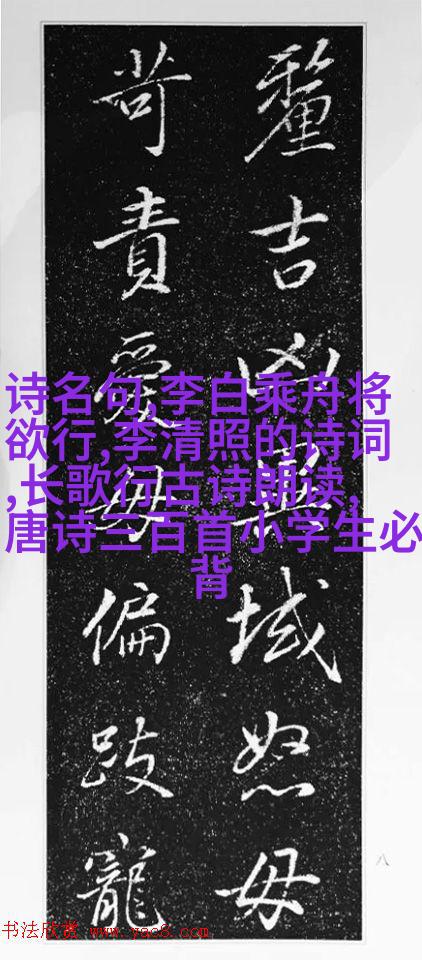 釐吉凶異域怒毋
苛責愛毋偏跂寵
诗名句,李白乘舟将
欲行,李清照的诗词
,长歌行古诗朗读,
唐诗三百首小学生必
背
八
书法欣赏 www.yac8.com